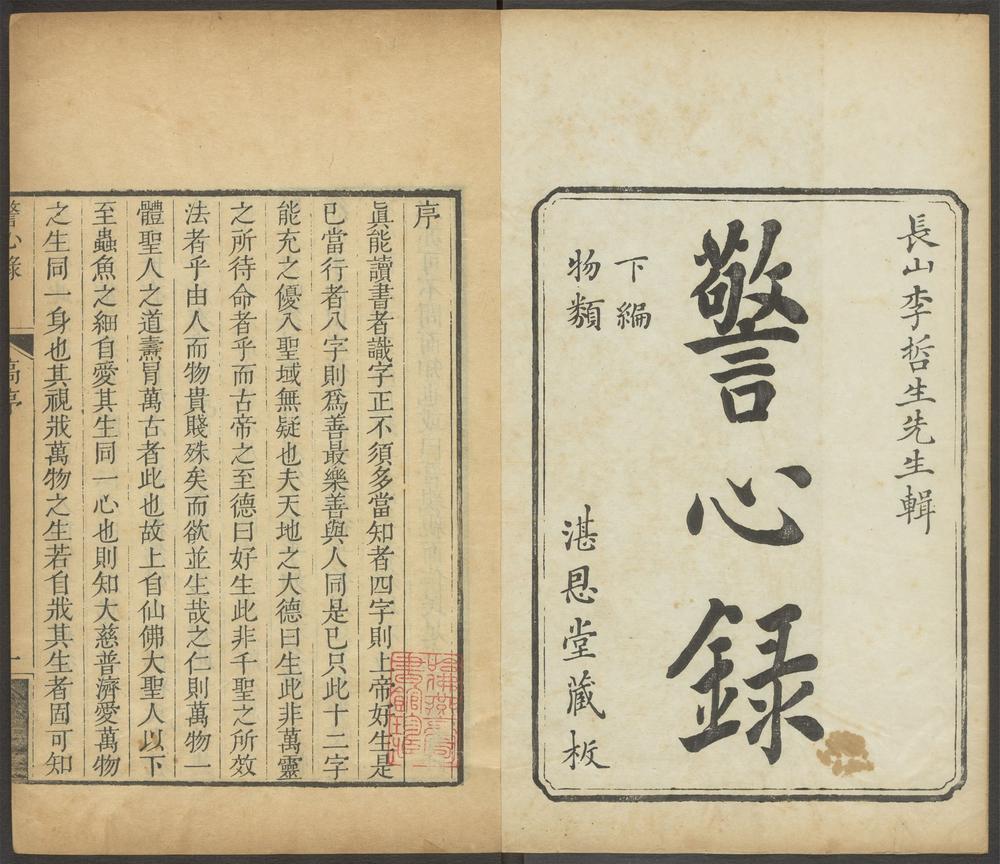 長山李哲生先生輯
警心録
下編
物類
湛恩堂藏板
序
眞能讀書者識字正不須多當知者四字則上帝好生是
已當行者八字則爲善最樂善與人同是已只此十二字
能充之優入聖域無疑也夫天地之大德曰生此非萬靈
之所待命者乎而古帝之至德曰好生此非千聖之所效
法者乎由人而物貴賤殊矣而欲並生哉之仁則萬物一
體聖人之道燾冒萬古者此也故上自仙佛大聖人以下
至蟲魚之細自愛其生同一心也則知大慈普濟愛萬物
之生同一身也其視戕萬物之生若自戕其生者固可知
警心錄
序
一